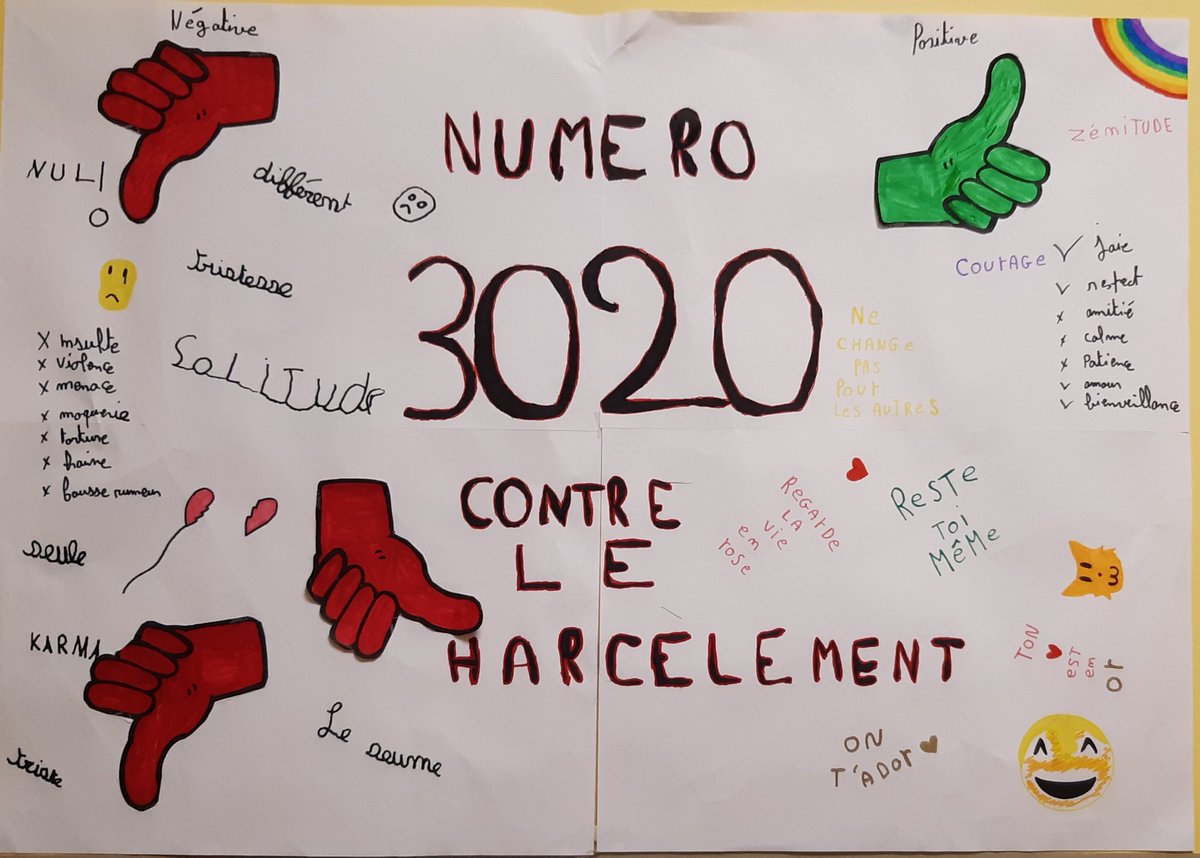 Négative
NUL!
différent
tristesse
SoLiTude
X insulte
X violence
X menace
X moquerie
X torture
X haine
X fausse rumeur
seule
KARMA
triste
Le seume
NUMERO
3020
CONTRE
LE
HARCELEMENT
Positive
ZémiTUDE
COUrAGe
✓ joie
✓ respect
x amitié
x calme
x Patience
✓ amour
✓ bienveillance
Ne
CHANGe
PAS
POUr
Les AUTReS
ReGArDe
LA
vie
em
rose
ReSTe
Toi
MêMe
TON
esT
em
or
ON
T'ADOr